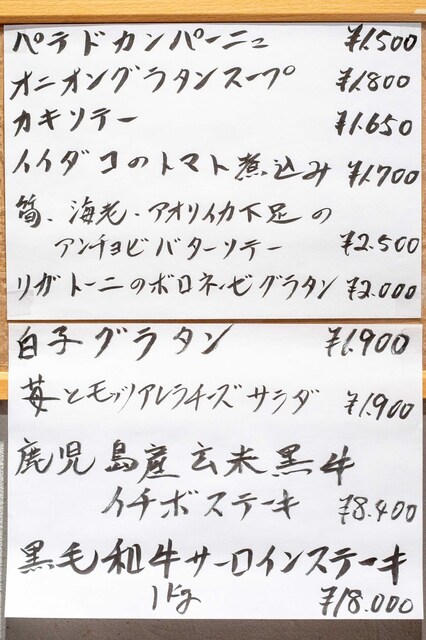 パテドカンパーニュ ¥1.500
オニオングラタンスープ ¥1.800
カキソテー ¥1.650
イイダコのトマト煮込み ¥1.700
筍、海老・アオリイカ下足の
アンチョビバターソテー ¥2.500
リガトーニのボロネーゼグラタン ¥2.000
白子グラタン ¥1.900
苺とモッツアレラチーズサラダ ¥1.900
鹿児島産玄米黒牛
イチボステーキ ¥8.400
黒毛和牛サーロインステーキ
1kg ¥18.000